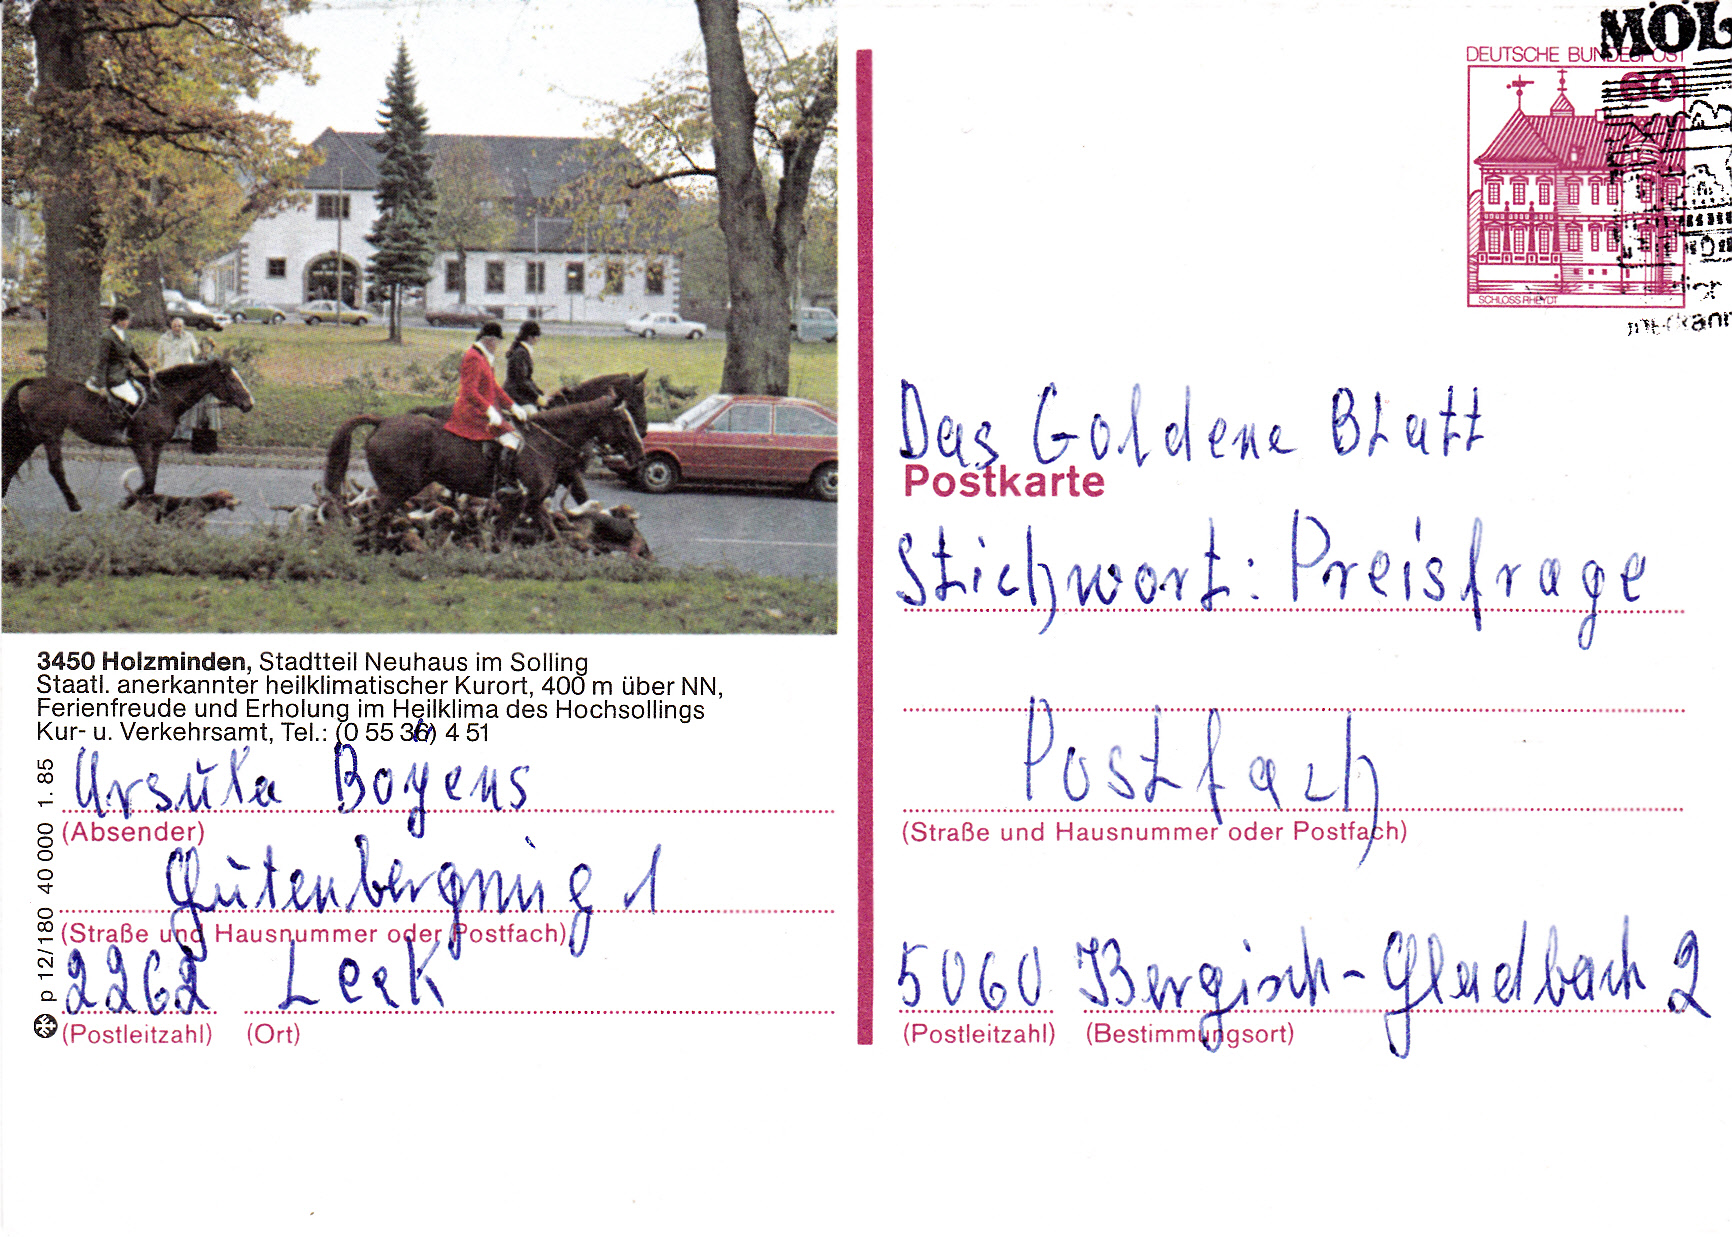 3450 Holzminden, Stadtteil Neuhaus im Solling
Staatl. anerkannter heilklimatischer Kurort, 400 m über NN,
Ferienfreude und Erholung im Heilklima des Hochsollings
Kur- u. Verkehrsamt, Tel.: (0 55 36) 4 51
Ursula Boyens
(Absender)
Gutenbergring 1
(Straße und Hausnummer oder Postfach)
2262 Leck
(Postleitzahl) (Ort)
p 12/180 40 000 1. 85
MÖL
DEUTSCHE BUNDESPOST
60
SCHLOSS RHEYDT
Das Goldene Blatt
Postkarte
Stichwort: Preisfrage
Postfach
(Straße und Hausnummer oder Postfach)
5060 Bergisch-Gladbach 2
(Postleitzahl) (Bestimmungsort)